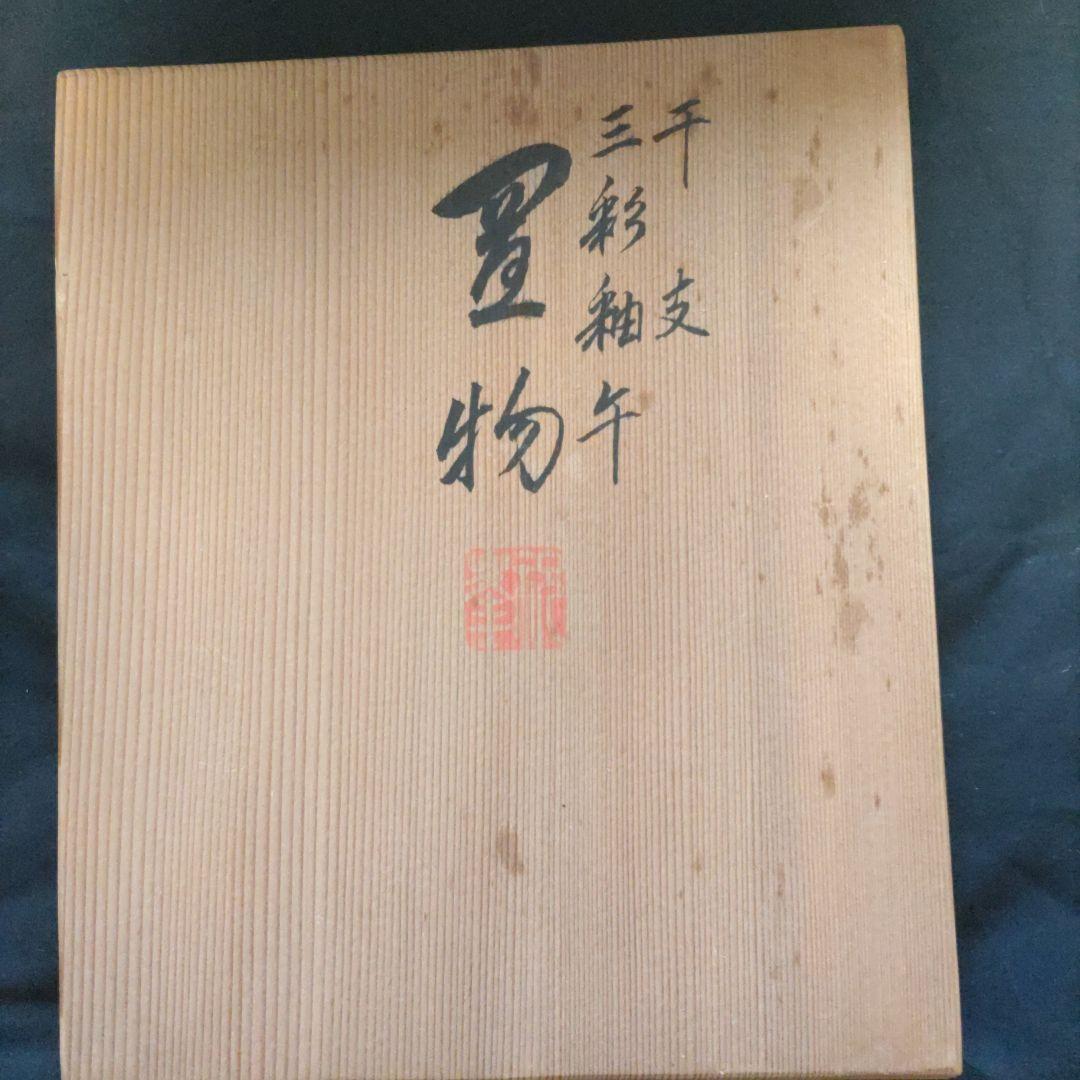 干支
三彩釉午
置物